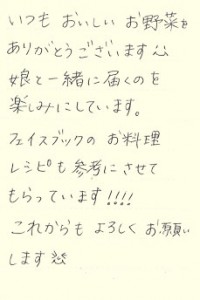 いつも おいしい お野菜を
ありがとうございます^^
娘と一緒に届くのを
楽しみにしています。
フェイスブックの お料理
レシピも参考にさせて
もらっています!!!!
これからも よろしく お願い
します^^